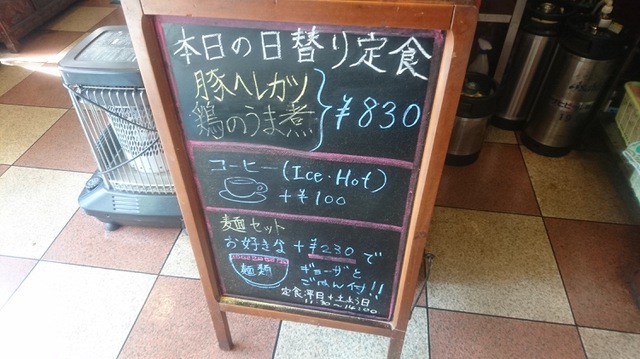 本日の日替り定食
豚ヘレカツ
鶏のうま煮
¥830
コーヒー(Ice・Hot)
+¥100
麺セット
お好きな +¥230で
麺類
ギョーザと
ごはん付!!
定食平日+土よう日
11:30〜14:00